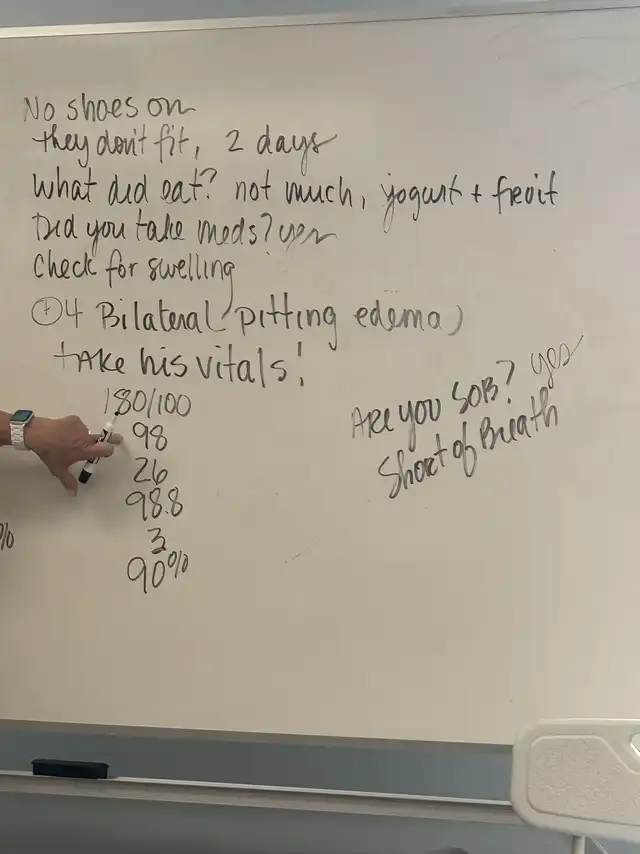 No shoes on
they don't fit, 2 days
What did eat? not much, yogurt + fruit
Did you take meds? yes
Check for swelling
+4 Bilateral (pitting edema)
take his vitals!
180/100
98
26
98.8
3
90%
Are you SOB? yes
Short of Breath
%